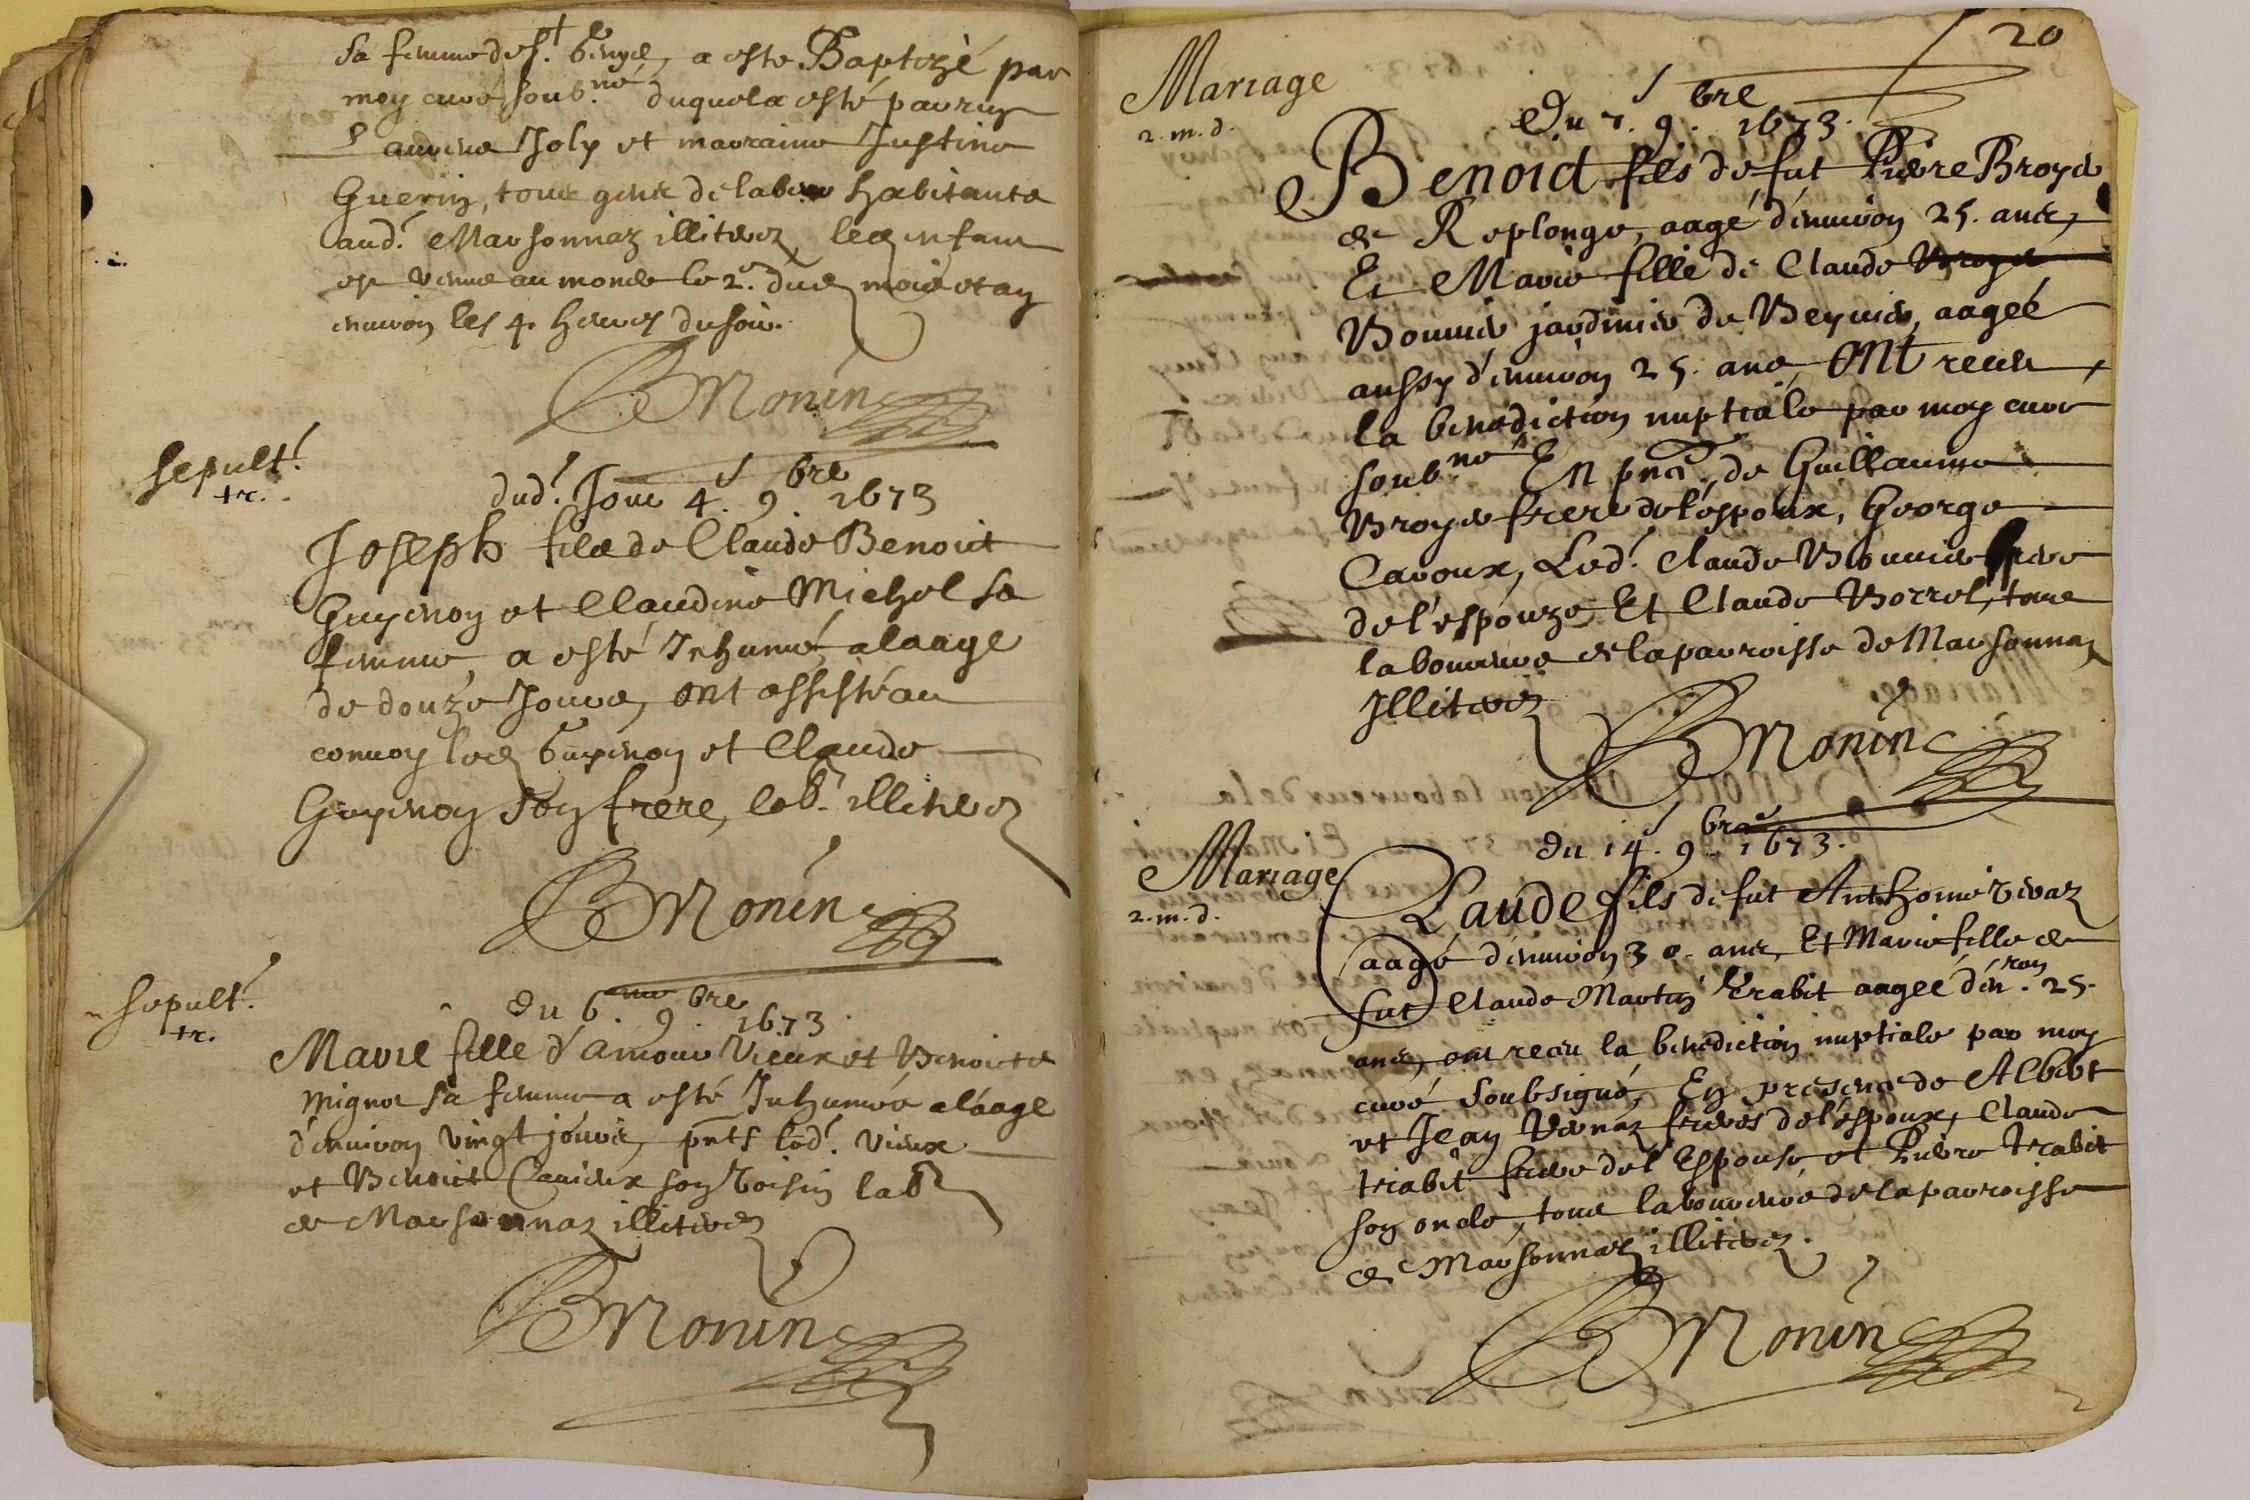 sa femme de St. Genys, a esté Baptizé par
moy curé soubné. duquel a esté parrin
Laurens Joly et marraine Justine
Guerin, tous gens de labeur habitants
aud. Marsonnaz illiterez, led enfant
est venu au monde le 2e. dud mois et an
environ les 4. heures du soir.
BMonin
Sepult.
+r.
dud. Jour 4. 9bre 1673
Joseph fils de Claude Benoict
Guyenon et Claudine Michel sa
femme, a esté Inhumé a laage
de douze Jours, ont assisté au
convoy led Guyenon et Claude
Guyenon son frere, labr. illiterez
BMonin
Sepult.
+r.
du 6me. 9bre. 1673.
Marie fille d'amour Vieux et Benoicte
Mignot sa femme a esté Inhumée a láage
d'environ vingt jours, pnts led. Vieux
et Benoict Cavieux son voisin labr
de Marsonnaz illiterez
BMonin
20
Mariage
2. m. d.
Du 7. 9bre 1673.
Benoict fils de fut Pierre Broyer
de Replonge, aagé d'environ 25. ans,
Et Marie fille de Claude
Bouvier jardinier de Beyvier, aagée
aussy d'environ 25. ans, ont receu
la benediction nuptiale par moy curé
soubné En pnce. de Guillaume
Broyer frere de l'espoux, George
Caroux, Led. Claude Bouvier pere
de l'espouze Et Claude Borrel, tous
laboureurs de la parroisse de Marsonnaz
Illiterez
BMonin
Mariage
2. m. d.
du 14. 9bre 1673.
Claude fils de fut Anthoine Vernaz
aagé d'environ 30. ans, Et Marie fille de
fut Claude Martin Trabit aagée d'environ. 25.
ans, ont receu la benediction nuptiale par moy
curé soubsigné, En presence de Albert
et Jean Vernaz freres de l'espoux, Claude
trabit frere de l'Espouse, et Pierre trabit
son oncle, tous laboureurs de la parroisse
de Marsonnaz illiterez.
BMonin